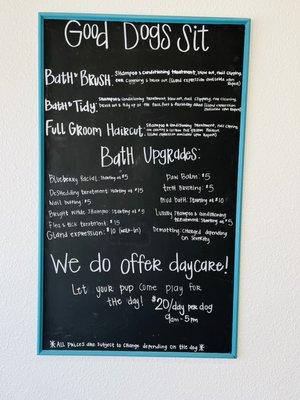 Good Dogs Sit
Bath + Brush: Shampoo & Conditioning treatment, blow out, nail clipping,
ear cleaning & brush out (Gland expression available upon
Request)
Bath + Tidy: Shampoo & Conditioning treatment, blow out, nail clipping, ear cleaning,
(Gland expression available
upon Request)
Full Groom Haircut: Shampoo & Conditioning treatment, nail clipping
ear cleaning &
(Gland expression available upon Request)
Bath Upgrades:
Blueberry Facial: Starting at $5
DeShedding treatment: Starting at $15
Nail buffing: $5
Bright White Shampoo: Starting at $5
Flea & tick treatment: $15
Gland expression: $10 (walk-in)
Paw Balm: $5
teeth Brushing: $5
Mud bath: Starting at $10
Luxury Shampoo & Conditioning
treatment: Starting at $5
Dematting: Charged depending
on Severity
We do offer daycare!
Let your pup come play for
the day! $20/day per dog
9am - 5pm
*All prices are subject to change depending on the dog*